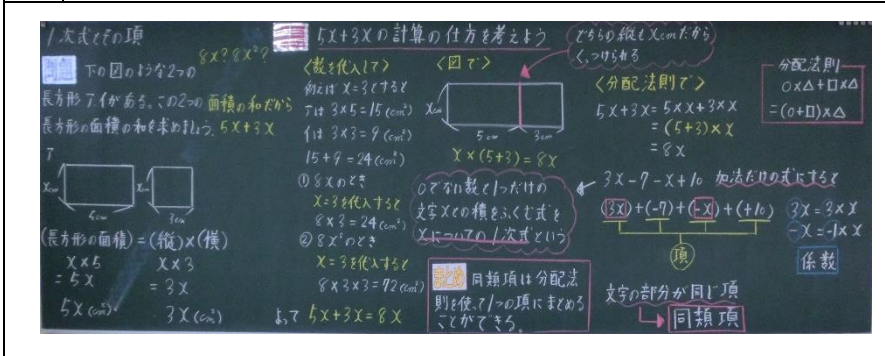 1次式とその項
8x? 8x²?
問題 下の図のような2つの
長方形ア、イがある。この2つの 面積の和だから
長方形の面積の和を求めましょう。 5x+3x
ア
xcm
5cm
xcm
3cm
(長方形の面積)=(縦)×(横)
x×5
=5x
5x(cm²)
x×3
=3x
3x(cm²)
5x+3xの計算の仕方を考えよう
〈数を代入して〉
例えば x=3とすると
アは 3×5=15(cm²)
イは 3×3=9(cm²)
15+9=24(cm²)
① 8xのとき
x=3を代入すると
8×3=24(cm²)
② 8x²のとき
x=3を代入すると
8×3×3=72(cm²)
よって 5x+3x=8x
〈図で〉
どちらの縦もxcmだから
くっつけられる
xcm
5cm
3cm
x×(5+3)=8x
0でない数と1つだけの
文字xとの積をふくむ式を
xについての1次式という
まとめ 同類項は分配法
則を使って1つの項にまとめる
ことができる。
〈分配法則で〉
5x+3x=5×x+3×x
=(5+3)×x
=8x
分配法則
○×△+□×△
=(○+□)×△
3x-7-x+10 加法だけの式にすると
(3x)+(-7)+(-x)+(+10)
項
3x=3×x
-x=-1×x
係数
文字の部分が同じ項
同類項